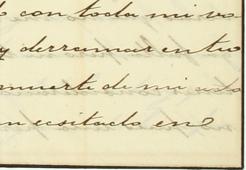 con toda mi
y derramar en tu
muerte de mi
necsitado en